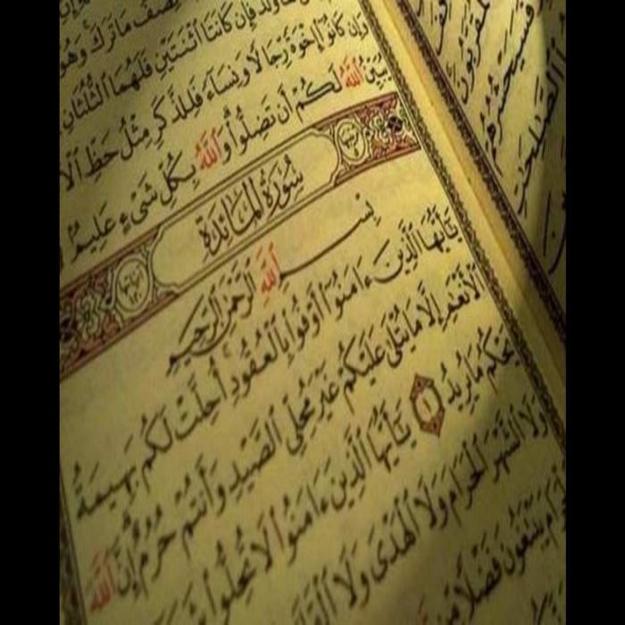 نِصْفُ مَا تَرَكَ وَهُوَ
وَلَدٌ فَإِن كَانَتَا ٱثْنَتَيْنِ فَلَهُمَا ٱلثُّلُثَانِ
وَإِن كَانُوٓا۟ إِخْوَةً رِّجَالًا وَنِسَآءً فَلِلذَّكَرِ مِثْلُ حَظِّ
يُبَيِّنُ ٱللَّهُ لَكُمْ أَن تَضِلُّوا۟ وَٱللَّهُ بِكُلِّ شَىْءٍ عَلِيمٌ
سُورَةُ المَائِدَة
بِسْمِ ٱللَّهِ ٱلرَّحْمَٰنِ ٱلرَّحِيمِ
يَٰٓأَيُّهَا ٱلَّذِينَ ءَامَنُوٓا۟ أَوْفُوا۟ بِٱلْعُقُودِ أُحِلَّتْ لَكُم بَهِيمَةُ
ٱلْأَنْعَٰمِ إِلَّا مَا يُتْلَىٰ عَلَيْكُمْ غَيْرَ مُحِلِّى ٱلصَّيْدِ وَأَنتُمْ حُرُمٌ إِنَّ ٱللَّهَ
يَحْكُمُ مَا يُرِيدُ ١ يَٰٓأَيُّهَا ٱلَّذِينَ ءَامَنُوا۟ لَا تُحِلُّوا۟
وَلَا ٱلشَّهْرَ ٱلْحَرَامَ وَلَا ٱلْهَدْىَ وَلَا
يَبْتَغُونَ فَضْلًا مِّن